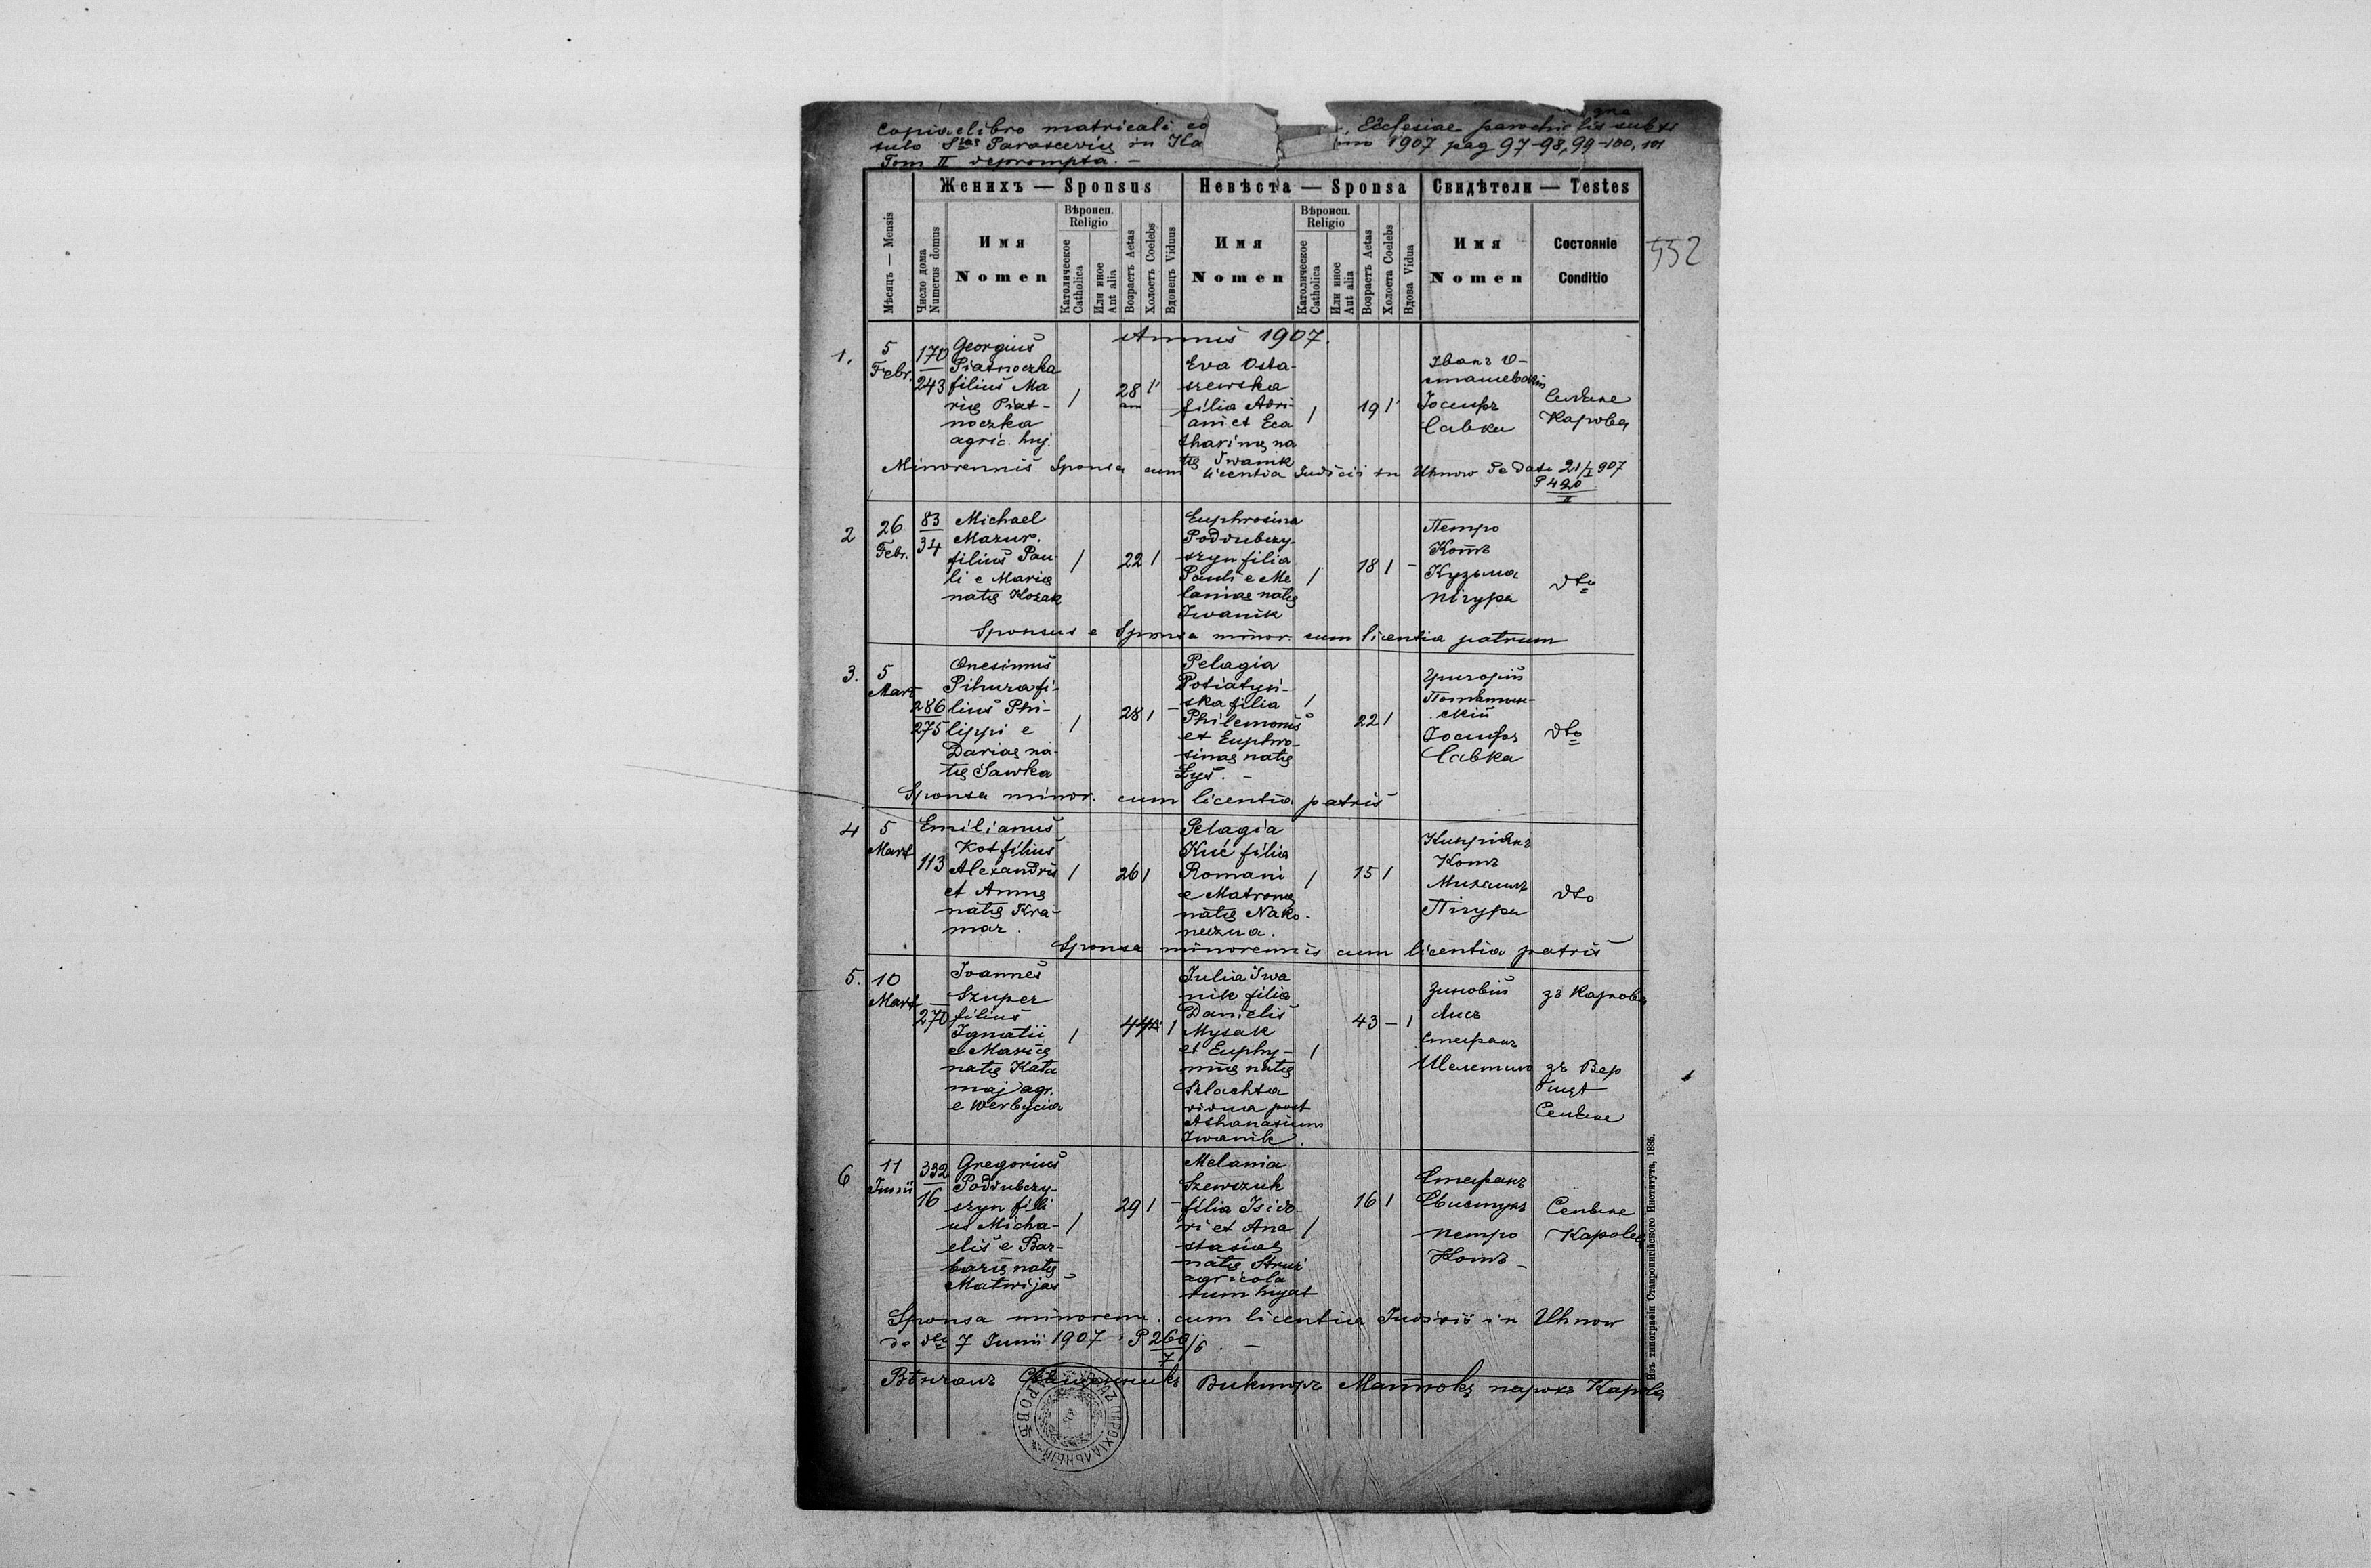 Copia e libro matricali co
Ecclesiae parochialis sub ti
tulo S^tae Parasceviae in Ka
1907 pag 97-98, 99-100, 101
Tom II deprompta. -
552
Женихъ — Sponsus
Невѣста — Sponsa
Свидѣтели — Testes
Мѣсяцъ — Mensis
Число дома
Numerus domus
Имя
Nomen
Вѣроисп.
Religio
Католическое
Catholica
Или иное
Aut alia
Возрастъ Aetas
Холостъ Coelebs
Вдовецъ Viduus
Имя
Nomen
Вѣроисп.
Religio
Католическое
Catholica
Или иное
Aut alia
Возрастъ Aetas
Холоста Coelebs
Вдова Vidua
Имя
Nomen
Состояніе
Conditio
Annus 1907.
1.
5
Febr.
170
243
Georgius
Piatnoczka
filius Ma
riae Piat-
noczka
agric. huj.
1
28
1
Eva Osta-
szewska
filia Adri-
ani et Eca
tharinae na
tae Iwanik
1
19
1
Іванъ О-
сташевскій
Іосифъ
Савка
Селяне
Карова
Minorennis Sponsa cum licentia Judicii in Uhnow de dato 21/I 907
P 420
II
2
26
Febr.
83
34
Michael
Mazur.
filius Pau-
li e Mariae
natae Kozak
1
22
1
Euphrosina
Poddubczy-
szyn filia
Pauli e Me
laniae natae
Iwanik
1
18
1
-
Петро
Котъ
Кузьма
Пігура
dto
Sponsus e Sponsa minor. cum licentia patrum
3.
5
Mart
286
275
Onesimus
Pihura fi-
lius Phi-
lippi e
Dariae na-
tae Sawka
1
28
1
-
Pelagia
Potiatyn-
ska filia
Philemonis
et Euphro-
sinae natae
Łys. -
1
22
1
Григорій
Потятин-
скій
Іосифъ
Савка
dto
Sponsa minor. cum licentia patris
4
5
Mart
113
Emilianus
Kot filius
Alexandri
et Annae
natae Kra-
mar.
1
26
1
Pelagia
Kuć filia
Romani
e Matronae
natae Nako-
neczna.
1
15
1
Кипріянъ
Котъ
Михаилъ
Пігура
dto
Sponsa minorennis cum licentia patris
5.
10
Mart
270
Joannes
Szuper
filius
Ignatii
e Mariae
natae Kata
maj agr.
e Werbycia
1
44
1
Julia Iwa
nik filia
Danielis
Mysak
et Euphy-
miae natae
Szlachta
vidua post
Athanasium
Iwanik.
1
43
-
1
Зиновій
Лисъ
Стефанъ
зъ Карова
зъ Вер
Селяне
6
11
Junii
332
16
Gregorius
Poddubczy-
szyn fili
us Micha-
elis e Bar-
barae natae
Matwijas
1
29
1
-
Melania
Szewczuk
filia Isido-
ri et Ana
stasiae
natae Struś
agricola
rum hujat
1
16
1
Стефанъ
Свистунъ
Петро
Котъ -
Селяне
Карова
Sponsa minorenn. cum licentia Judicii in Uhnow
de dto 7 Junii 1907 P 260/6
7
Вѣнчалъ Священникъ Викторъ Матюкъ парохъ Карова
Изъ типографіи Ставропигійского Института, 1885.